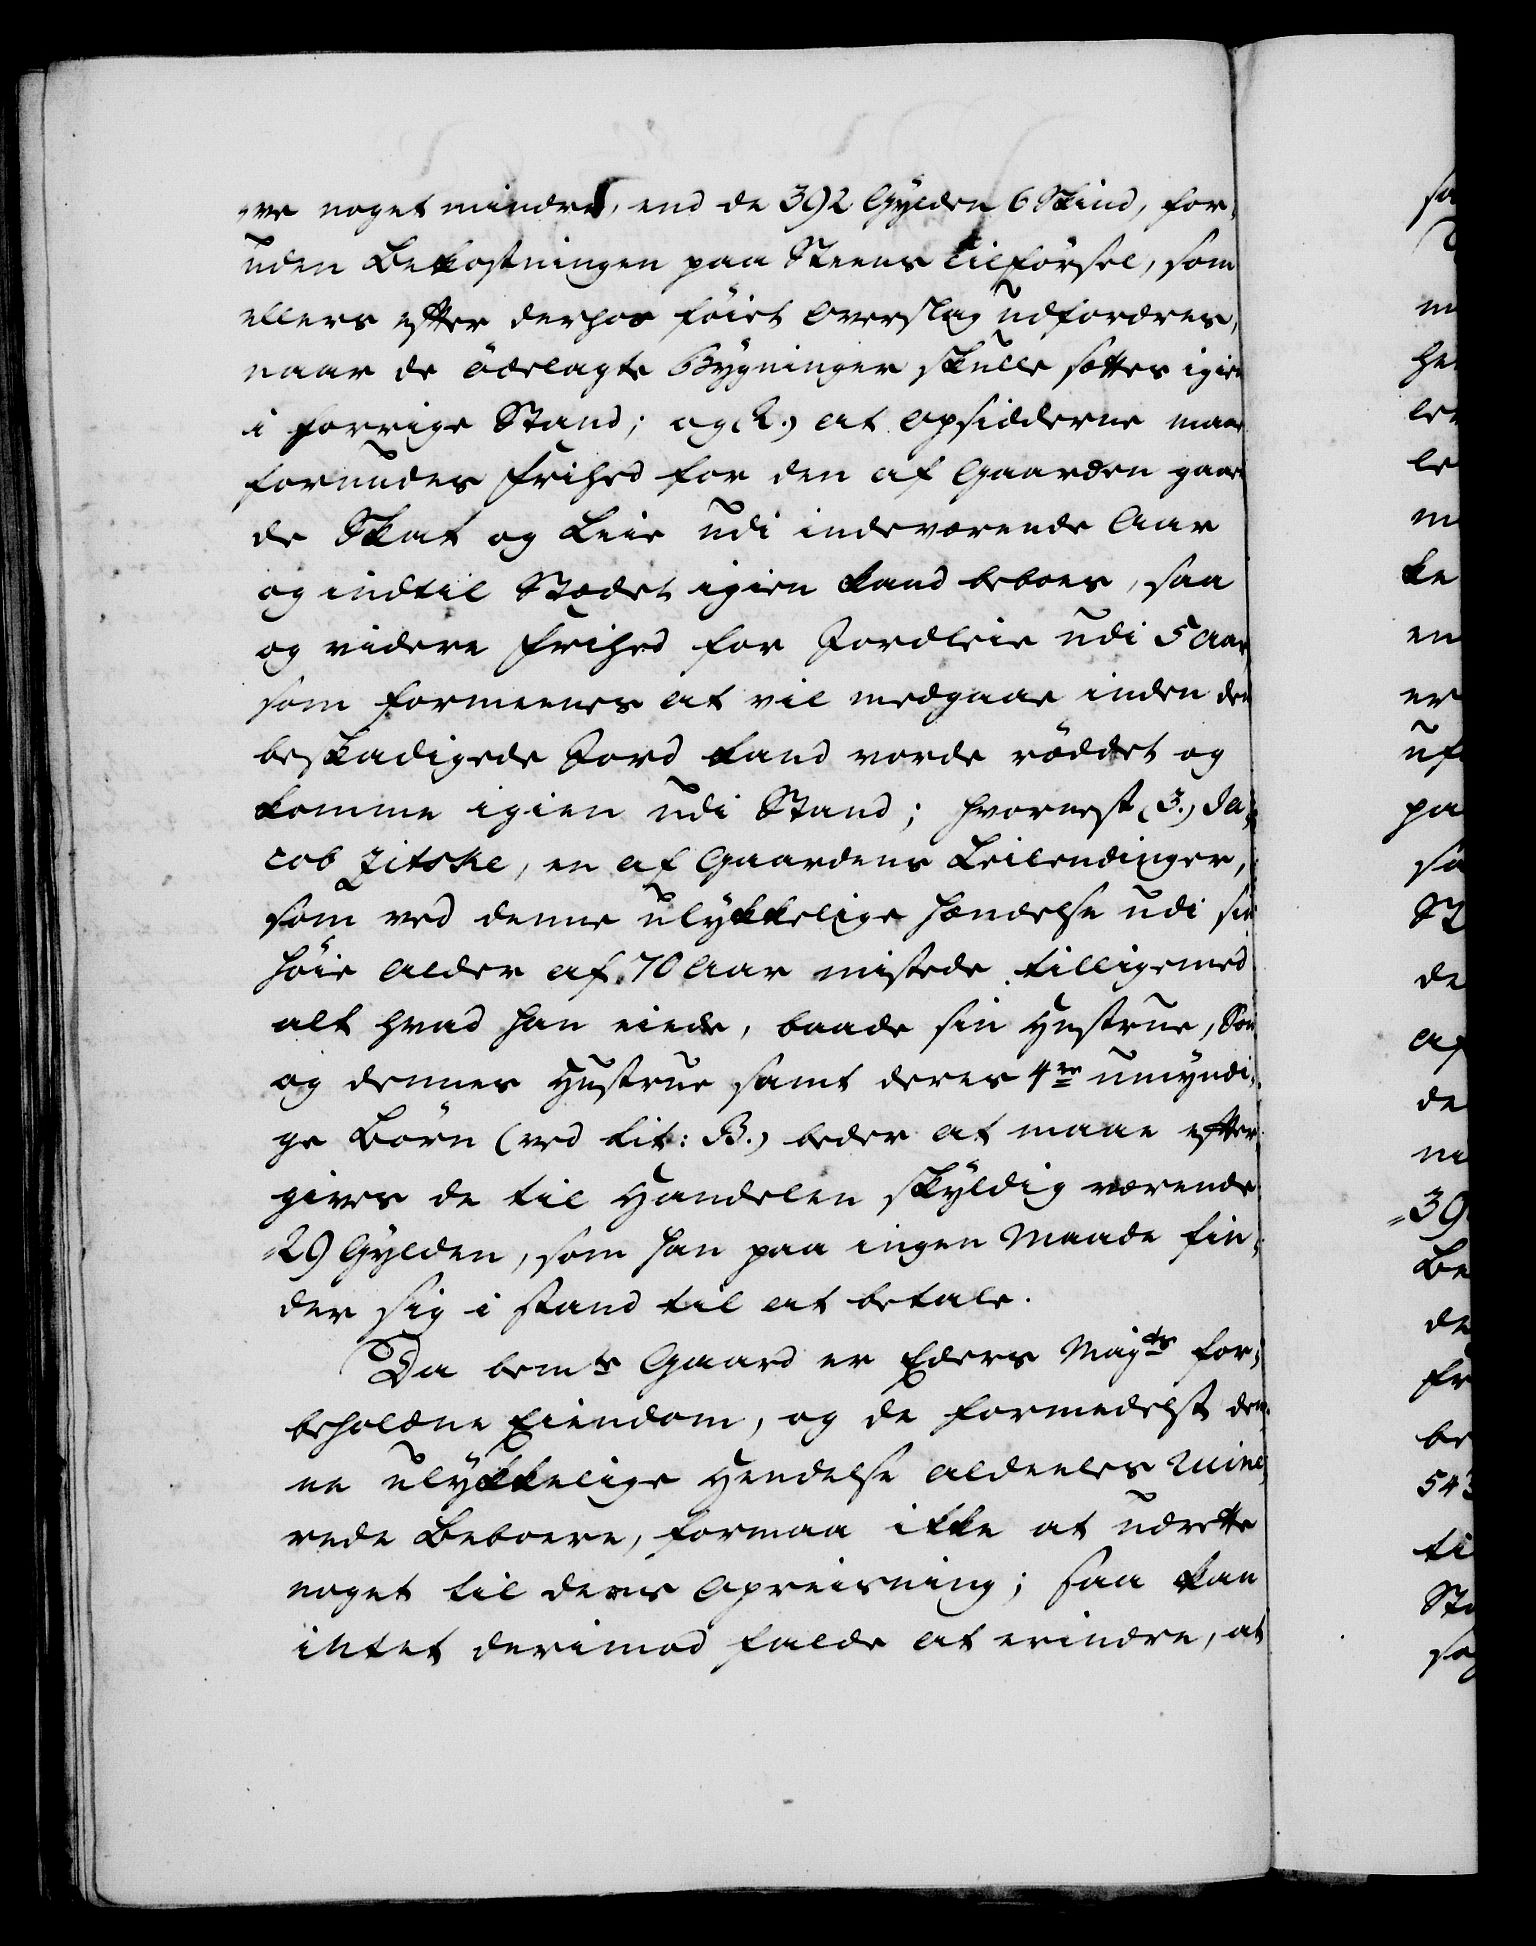 -ve noget mindre, end de 392 Gylden 6 Skind, for-
uden Bekostningen paa Steens Tilførsel, som
ellers efter derhos føiet Overslag udfordres,
naar de ödelagte Bygninger skulle sættes igien
i forrige Stand; og (2.) at Opsidderne maae
forundes Frihed for den af Gaarden gaaen
de Skat og Leie udi indeværende Aar
og indtil Stædet igien kand beboes, saa
og videre Frihed for Jordleie udi 5 Aar
som formeenes at vil medgaae inden den
beskadigede Jord kand vorde røddet og
komme igien udi Stand; hvornest (3.) Ja-
cob Zitske, en af Gaardens Leilendinger,
som ved denne ulykkelige Hændelse udi sin
høie Alder af 70 Aar mistede tilligemed
alt hvad han eiede, baade sin Hustrue, Søn
og dennes Hustrue samt deres 4re umyndi-
ge Børn (ved Lit: B.) beder at maae efter-
gives de til Handelen skyldig værende
29 Gylden, som han paa ingen Maade fin-
der sig i stand til at betale.
Da bemte Gaard er Eders Majts for-
beholdne Eiendom, og de formedelst den-
ne ulykkelige Hendelse aldeeles ruine-
rede Beboere, formaa ikke at udrette
noget til dens Opreisning; saa kan
intet derimod falde at erindre, at